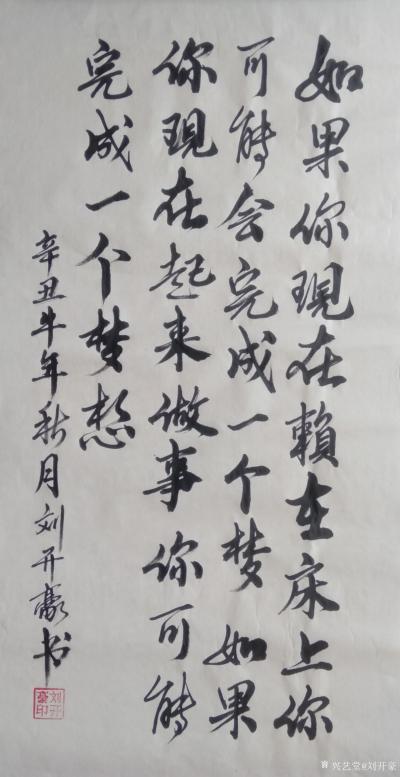 如果你現在賴在床上你
可能会完成一个梦如果
你現在起来做事你可能
完成一个梦想
辛丑牛年秋月刘开豪书
刘开豪印
兴艺堂@刘开豪